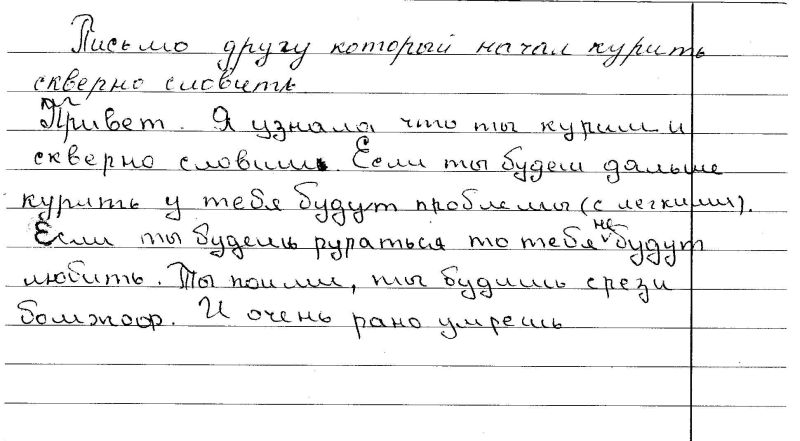 Письмо другу который начал курить
скверно словить
Привет. Я узнала что ты куриш и
скверно словиш. Если ты будеш дальше
курить у тебя будут проблемы (с легкими).
Если ты будешь рураться то тебя не будут
любить. Ты поими, ты будишь срези
бомжоф. И очень рано умрешь